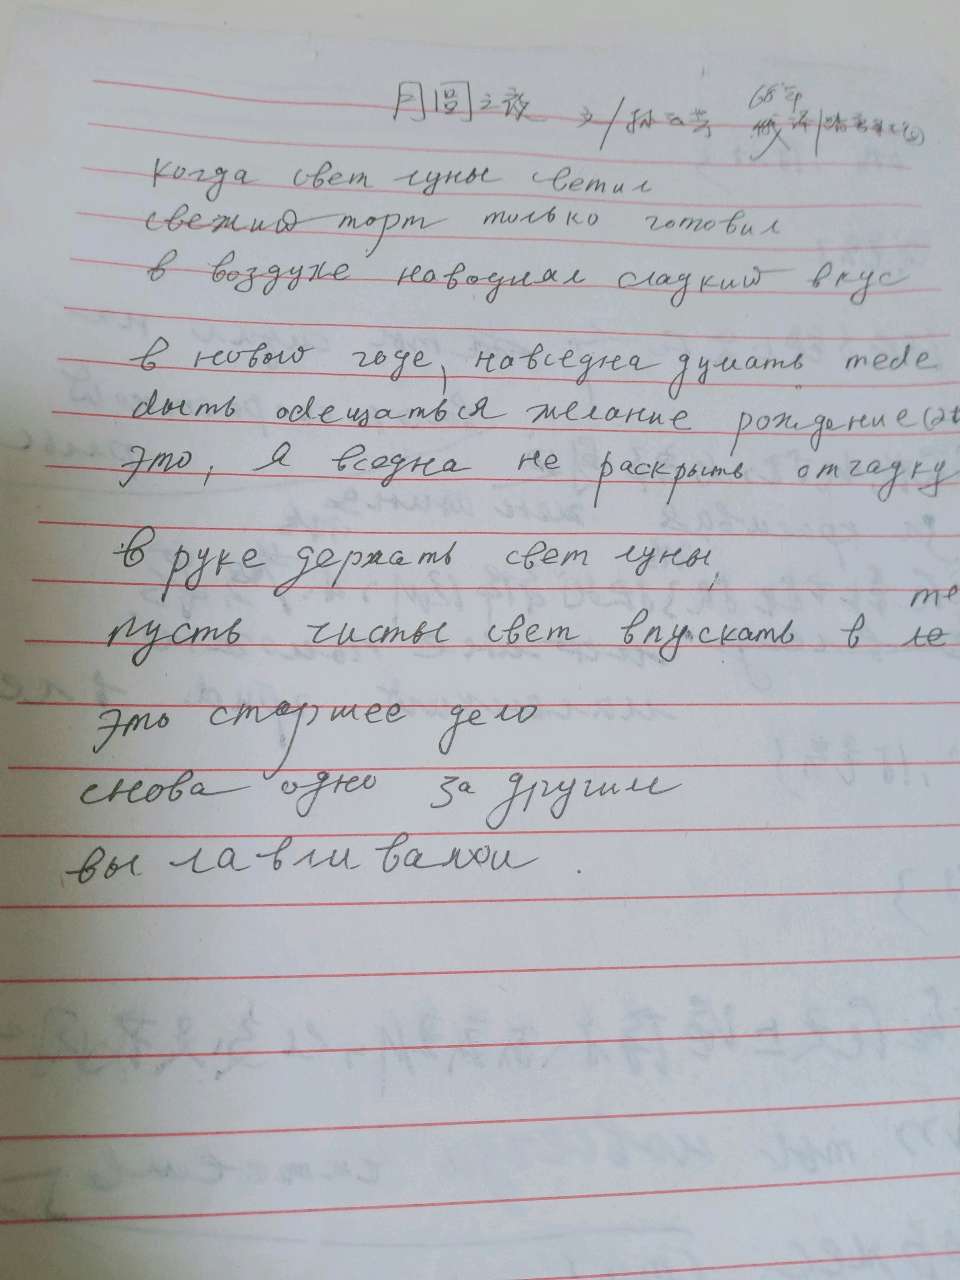 月圆之夜 文/孙
68年 俄译
когда свет луны светил
свежий торт только готовил
в воздухе наводнял сладкий вкус
в новом годе, навседна думать тебе
быть обещаться желание рождение
это, я вседна не раскрыть отгадку
в руке держать свет луны,
те
пусть чисты свет впускать в
это старшее дело
снова одно за другим
вы лавливалои.